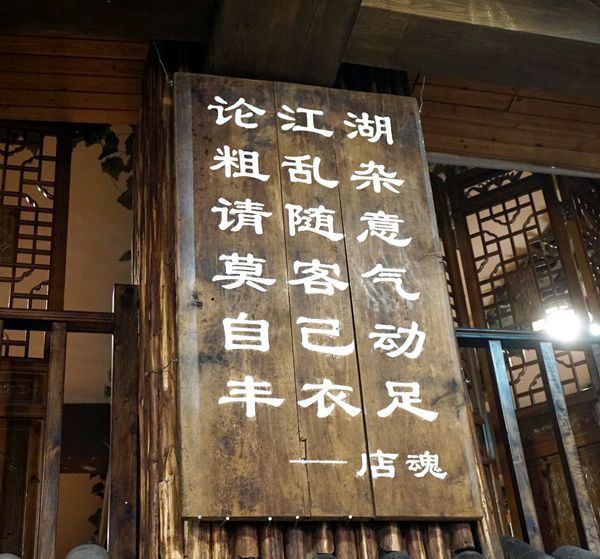 论江湖
粗乱杂
请随意
莫客气
自己动
丰衣足
——店魂